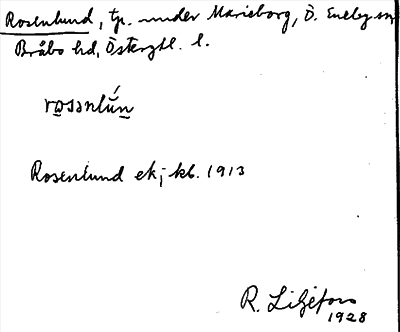 Rosenlund, tp. under Marieborg, Ö. Eneby sn
Bråbo hd, Östergötl. l.
rosənlún
Rosenlund ek; kb. 1913
R. Liljefors
1928